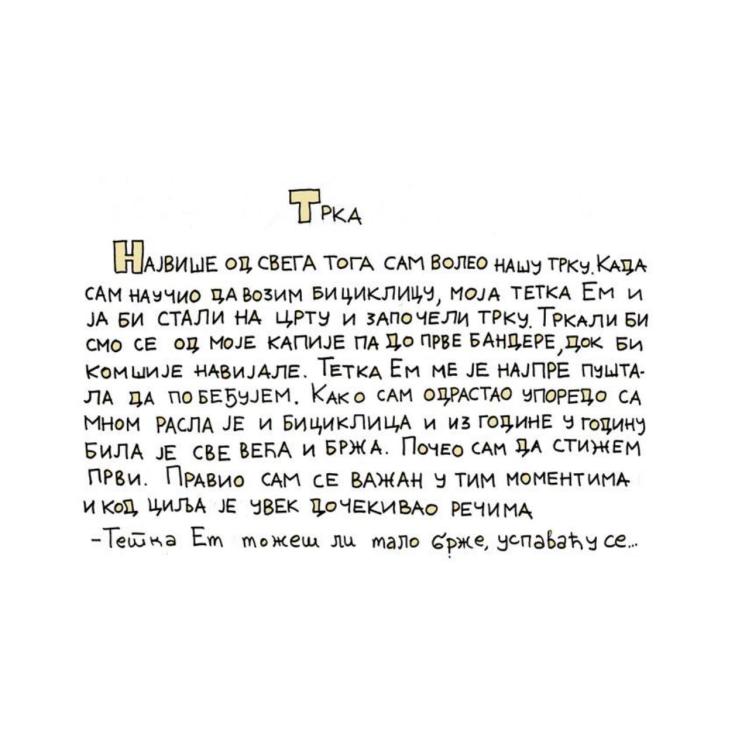 Трка
Највише од свега тога сам волео нашу трку. Када
сам научио да возим бициклицу, моја тетка Ем и
ја би стали на црту и започели трку. Тркали би
смо се од моје капије па до прве бандере, док би
комшије навијале. Тетка Ем ме је најпре пушта-
ла да побеђујем. Како сам одрастао упоредо са
мном расла је и бициклица и из године у годину
била је све већа и бржа. Почео сам да стижем
први. Правио сам се важан у тим моментима
и код циља је увек дочекивао речима
-Тетка Ем можеш ли мало брже, успаваћу се...